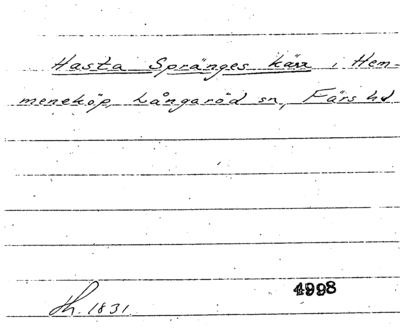 Hasta Spränges kärr i Hem-
meneköp, Långaröd sn, Färs hd
4998
Lh. 1831